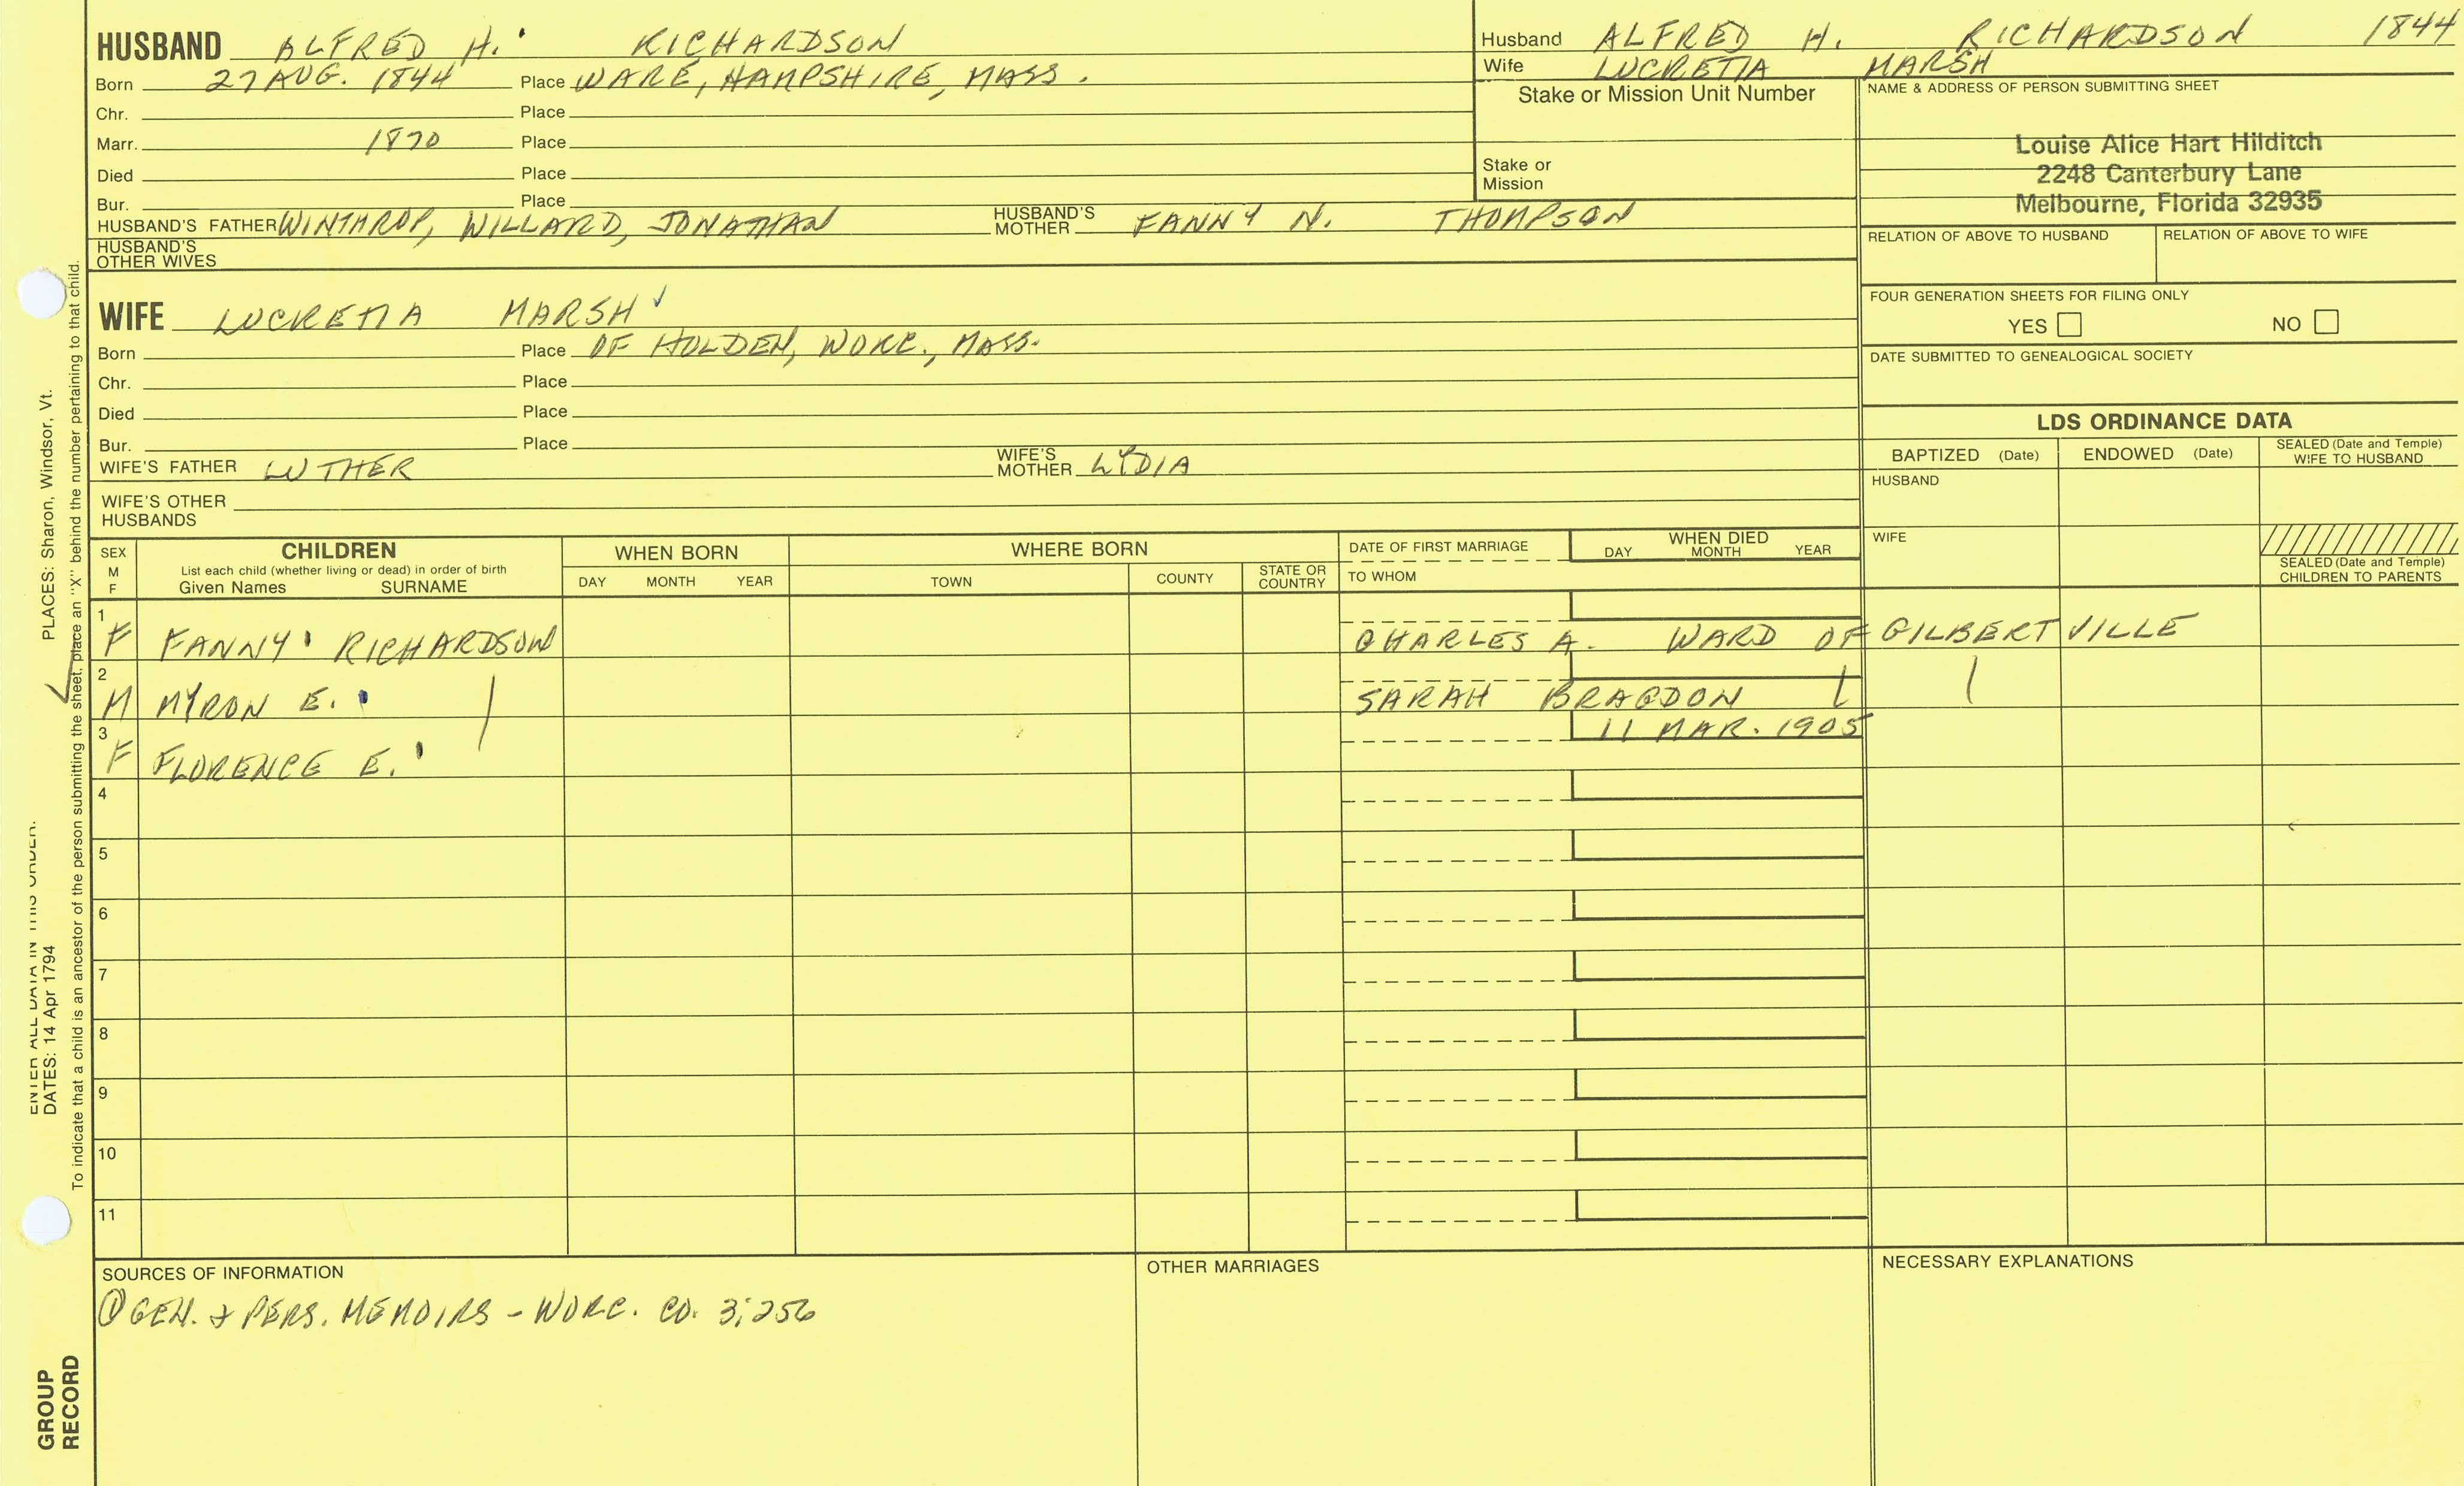 HUSBAND ALFRED H. RICHARDSON
Born 27 AUG. 1844 Place WARE, HAMPSHIRE, MASS.
Chr. Place
Marr. 1870 Place
Died Place
Bur. Place
HUSBAND'S FATHER WINTHROP, WILLARD, JONATHAN HUSBAND'S MOTHER FANNY N. THOMPSON
HUSBAND'S OTHER WIVES
Husband ALFRED H. RICHARDSON 1844
Wife LUCRETIA MARSH
Stake or Mission Unit Number
Stake or Mission
NAME & ADDRESS OF PERSON SUBMITTING SHEET
Louise Alice Hart Hilditch
2248 Canterbury Lane
Melbourne, Florida 32935
RELATION OF ABOVE TO HUSBAND RELATION OF ABOVE TO WIFE
FOUR GENERATION SHEETS FOR FILING ONLY
YES NO
DATE SUBMITTED TO GENEALOGICAL SOCIETY
WIFE LUCRETIA MARSH
Born Place OF HOLDEN, WORC., MASS.
Chr. Place
Died Place
Bur. Place
WIFE'S FATHER LUTHER WIFE'S MOTHER LYDIA
WIFE'S OTHER HUSBANDS
LDS ORDINANCE DATA
BAPTIZED (Date) ENDOWED (Date) SEALED (Date and Temple) WIFE TO HUSBAND
HUSBAND
WIFE
SEALED (Date and Temple) CHILDREN TO PARENTS
SEX M F
CHILDREN
List each child (whether living or dead) in order of birth
Given Names SURNAME
WHEN BORN
DAY MONTH YEAR
WHERE BORN
TOWN COUNTY STATE OR COUNTRY
DATE OF FIRST MARRIAGE
TO WHOM
WHEN DIED
DAY MONTH YEAR
1 F FANNY RICHARDSON CHARLES A. WARD OF GILBERTVILLE
2 M MYRON E. SARAH BRAGDON
3 F FLORENCE E. 11 MAR. 1905
4
5
6
7
8
9
10
11
SOURCES OF INFORMATION
① GEN. & PERS. MEMOIRS - WORC. CO. 3;256
OTHER MARRIAGES
NECESSARY EXPLANATIONS
PLACES: Sharon, Windsor, Vt.
ENTER ALL DATA IN THIS ORDER.
DATES: 14 Apr 1794
To indicate that a child is an ancestor of the person submitting the sheet, place an "X" behind the number pertaining to that child.
GROUP RECORD